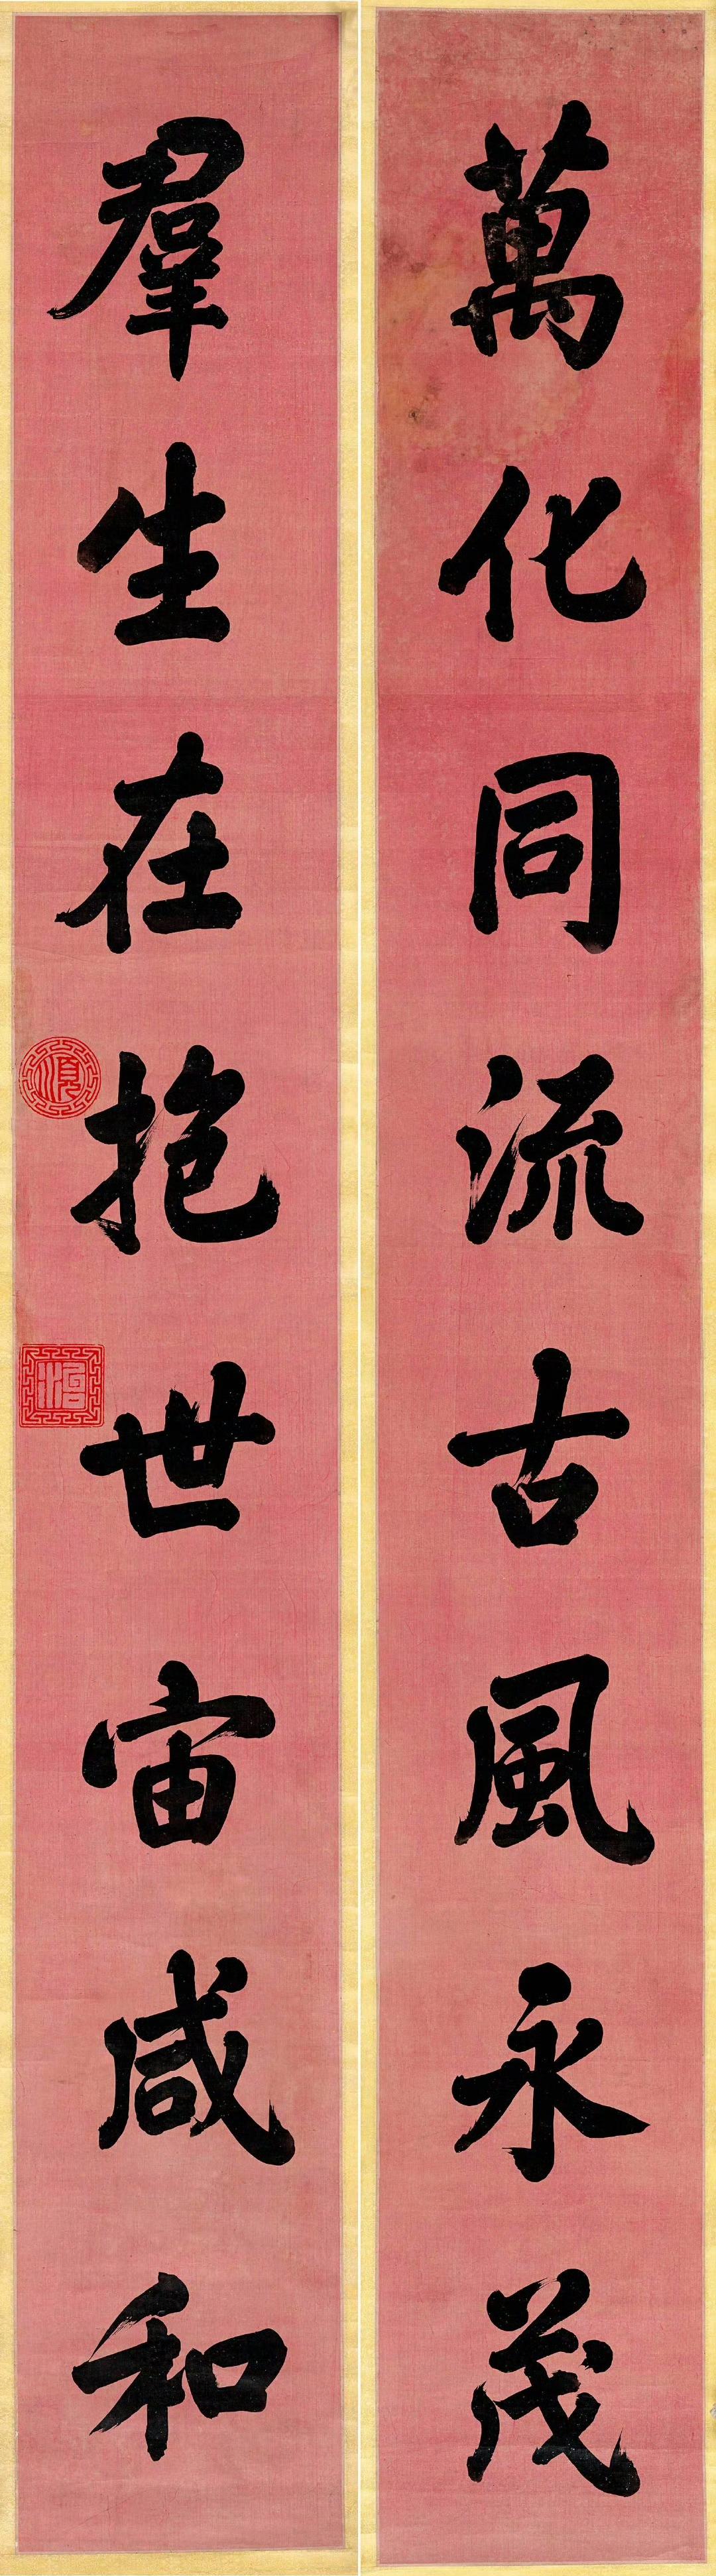 萬化同流古風永茂
羣生在抱世宙咸和